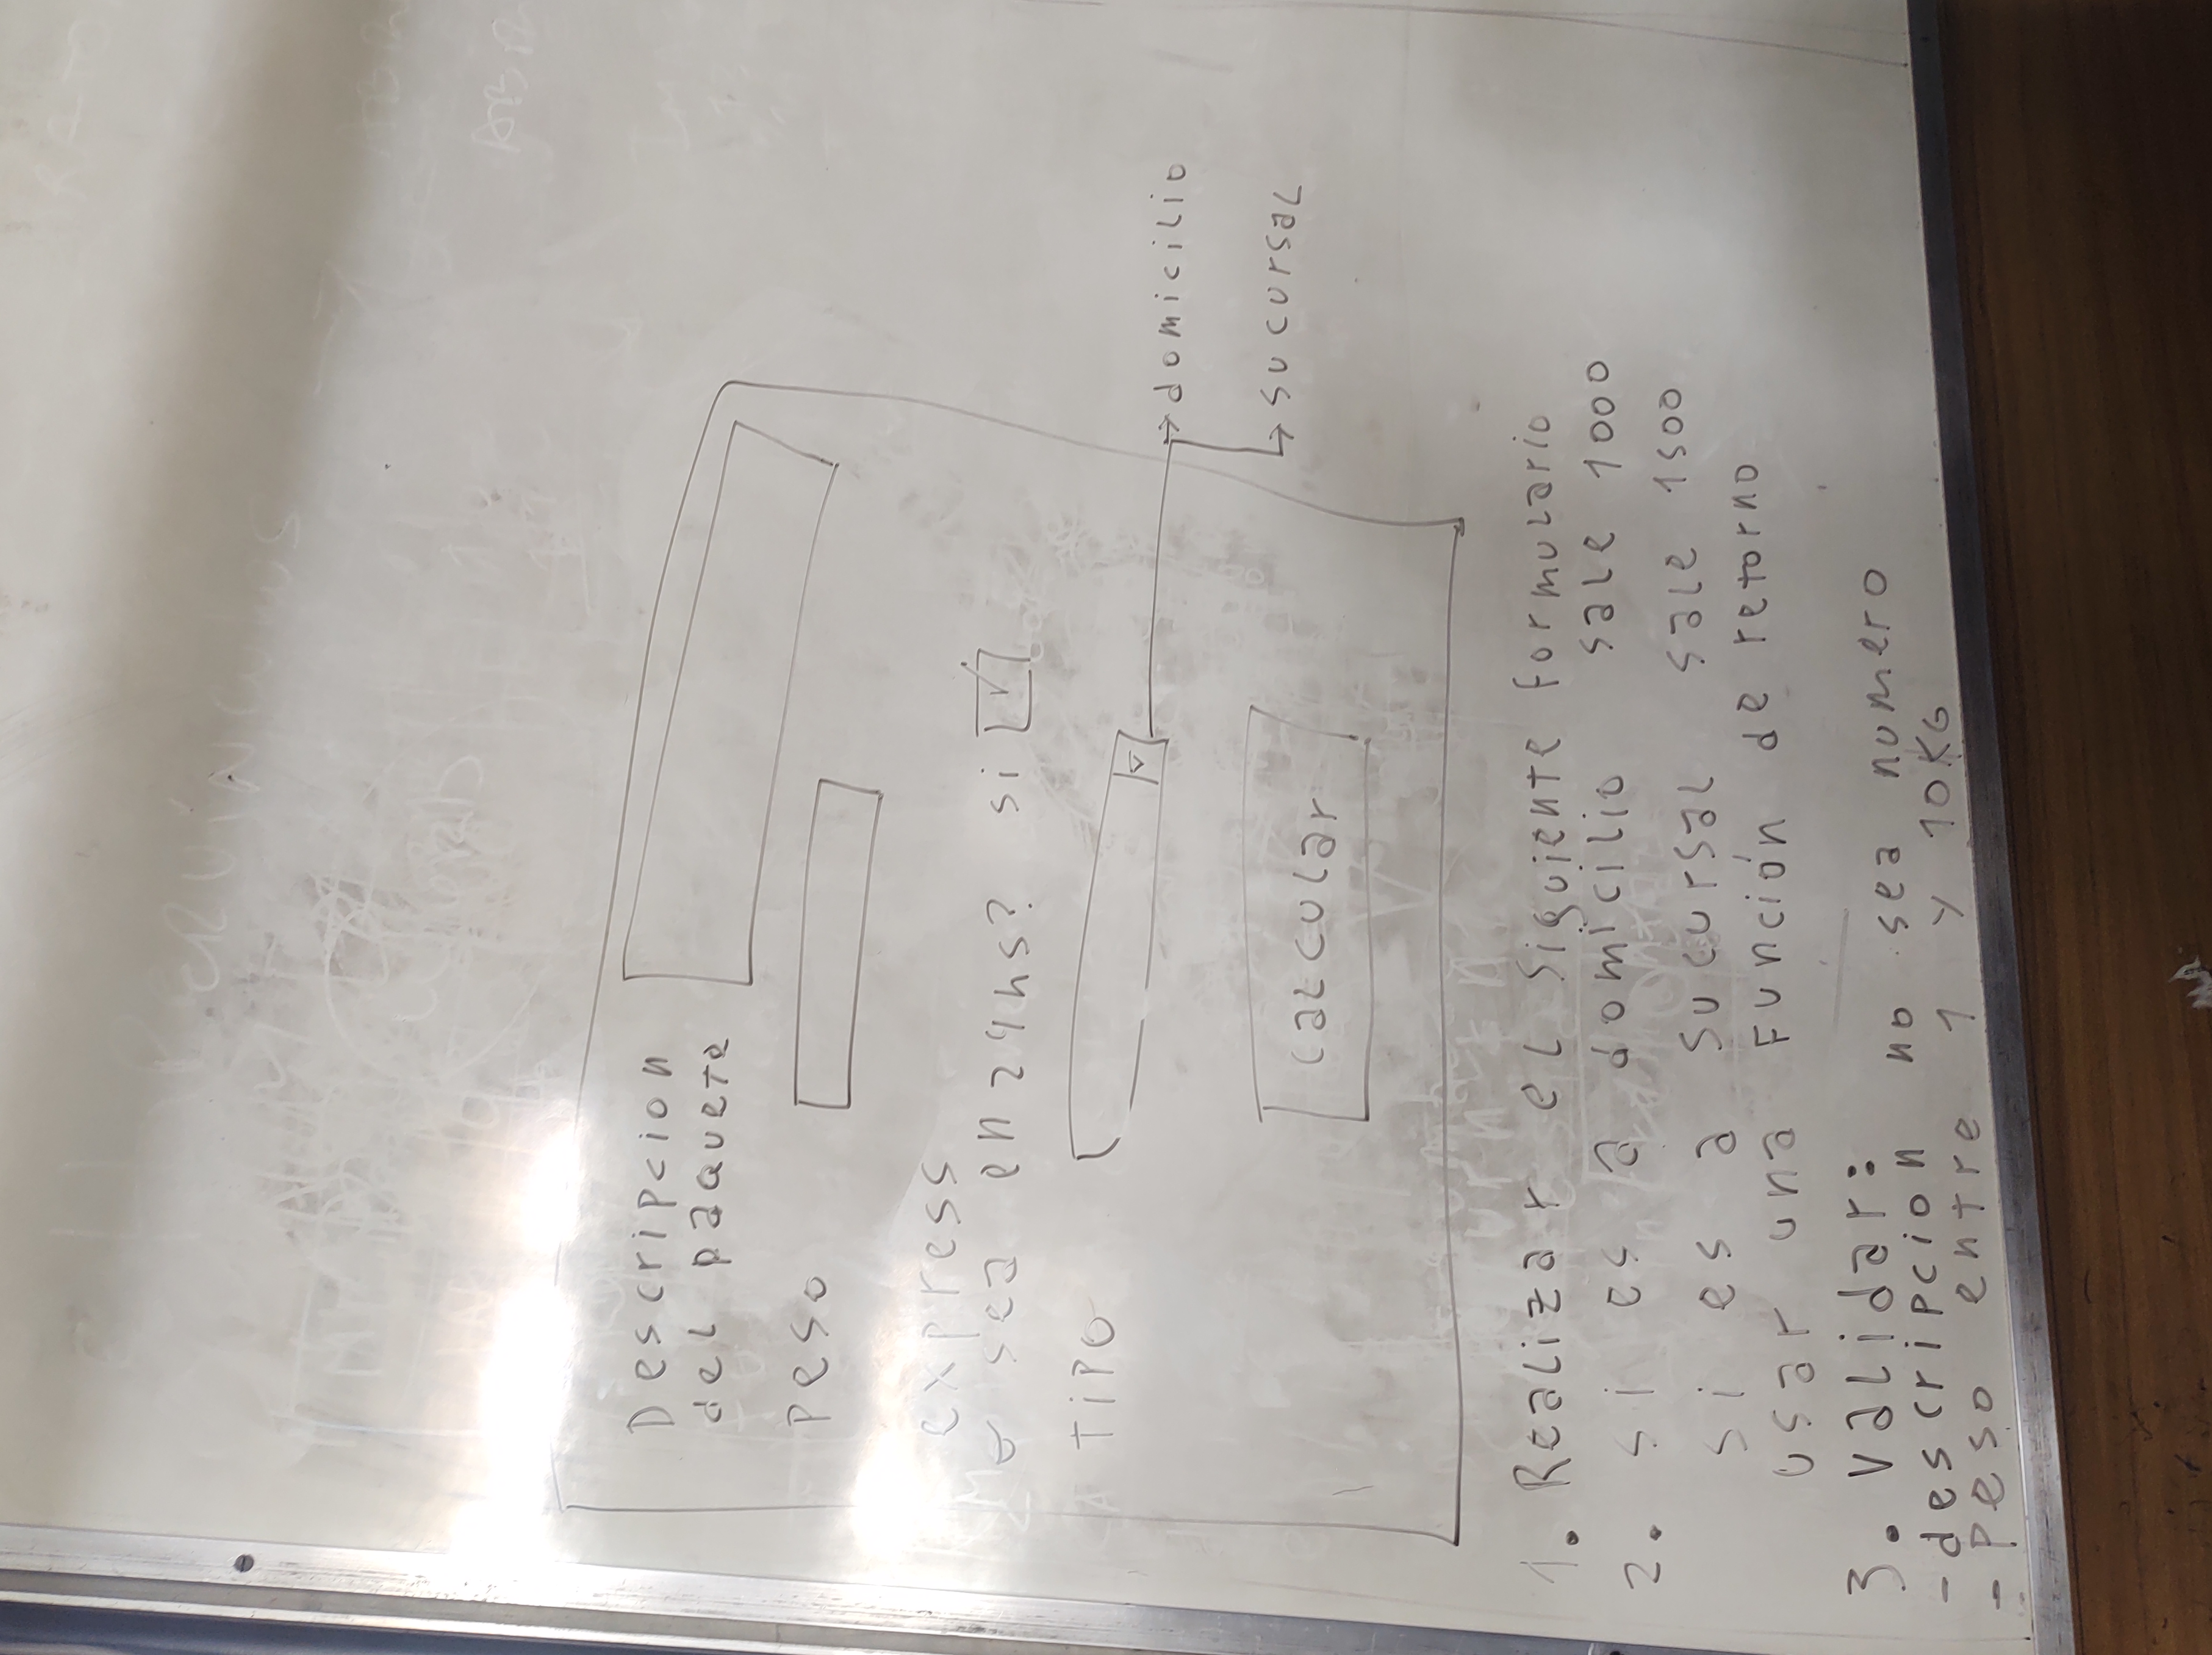 Descripcion
del paquete
Peso
express
o sea en 24hs? si
Tipo
domicilio
sucursal
calcular
1. Realizar el siguiente formulario
2. si es a domicilio sale 1000
si es a sucursal sale 1500
usar una función de retorno
3. validar:
- descripcion no sea numero
- peso entre 1 y 10KG